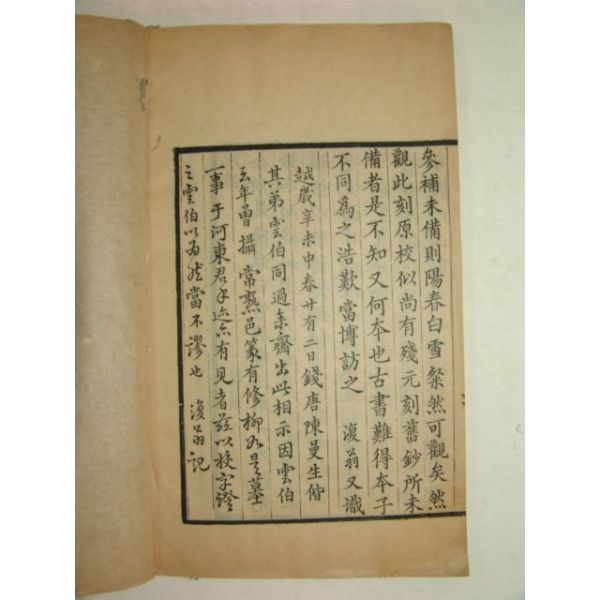 參補未備則陽春白雪粲然可觀矣然
觀此刻原校似尚有殘元刻舊鈔所未
備者是不知又何本也古書難得本子
不同為之浩歎當博訪之　復翁又識
越歲辛未中春廿有二日錢唐陳曼生偕
其弟雲伯同過余齋出此相示因雲伯
去年曾攝常熟邑篆有修柳如是墓
一事于河東君手迹亦有見者茲以校字證
之雲伯以為然當不謬也　復翁記